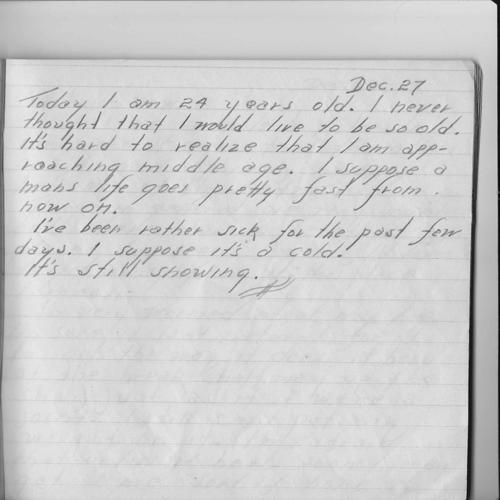 Dec. 27
Today I am 24 years old. I never
thought that I would live to be so old.
It's hard to realize that I am app-
roaching middle age. I suppose a
mans life goes pretty fast from
now on.
I've been rather sick for the past few
days. I suppose it's a cold.
It's still snowing.